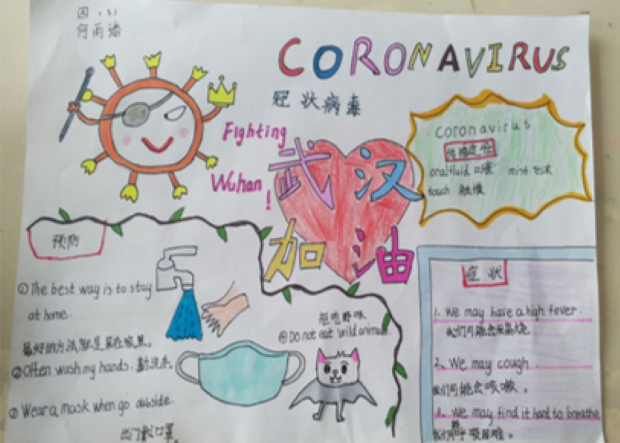 四（5）
何雨诺
CORONAVIRUS
冠状病毒
Fighting
Wuhan!
武汉
加油
coronavirus
oral fluid 口液
touch 触摸
预防
①The best way is to stay
at home.
最好的方法就是呆在家里。
②Often wash my hands. 勤洗手
③Wear a mask when go outside.
出门戴口罩。
拒吃野味
④Do not eat wild animals
症状
1. We may have a high fever.
我们可能会发高烧
2. We may cough
我们可能会咳嗽。
3. We may find it hard to breathe
我们呼吸困难。